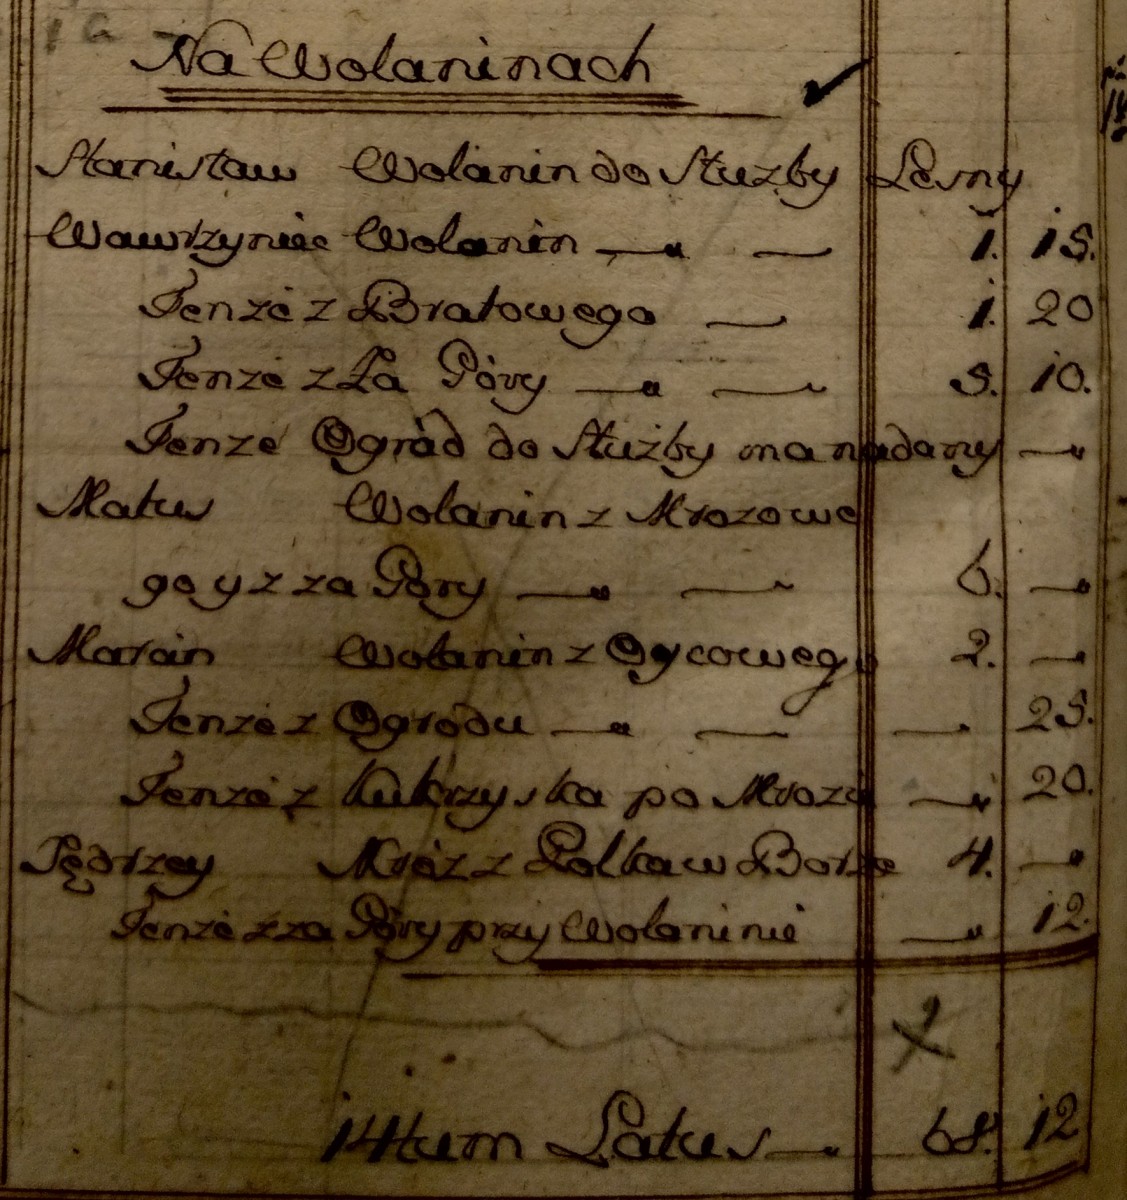 Na Wolaninach
Stanisław Wolanin do Służby Leśny
Wawrzyniec Wolanin —„ — 1. 15.
Tenże z Bratowego — 1. 20
Tenże z Za Góry —„ — 5. 10.
Tenże Ogród do Służby ma nadany —„
Matus Wolanin z Mrozowe
go y z za Góry —„ — 6. —„
Marcin Wolanin z Oycowego 2. —„
Tenże z Ogrodu —„ — — 25.
Tenże z Kukrzyska po Mrozie —„ 20.
Jędrzey Mróz z Polka w Borze 4. —„
Tenże z za Góry przy Wolaninie —„ 12.
14tum Latus —„ 68. 12